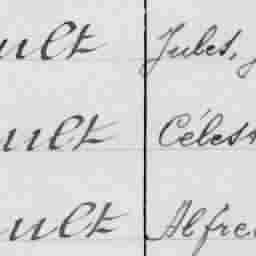 ult Jules,
ult Céles
ult Alfre